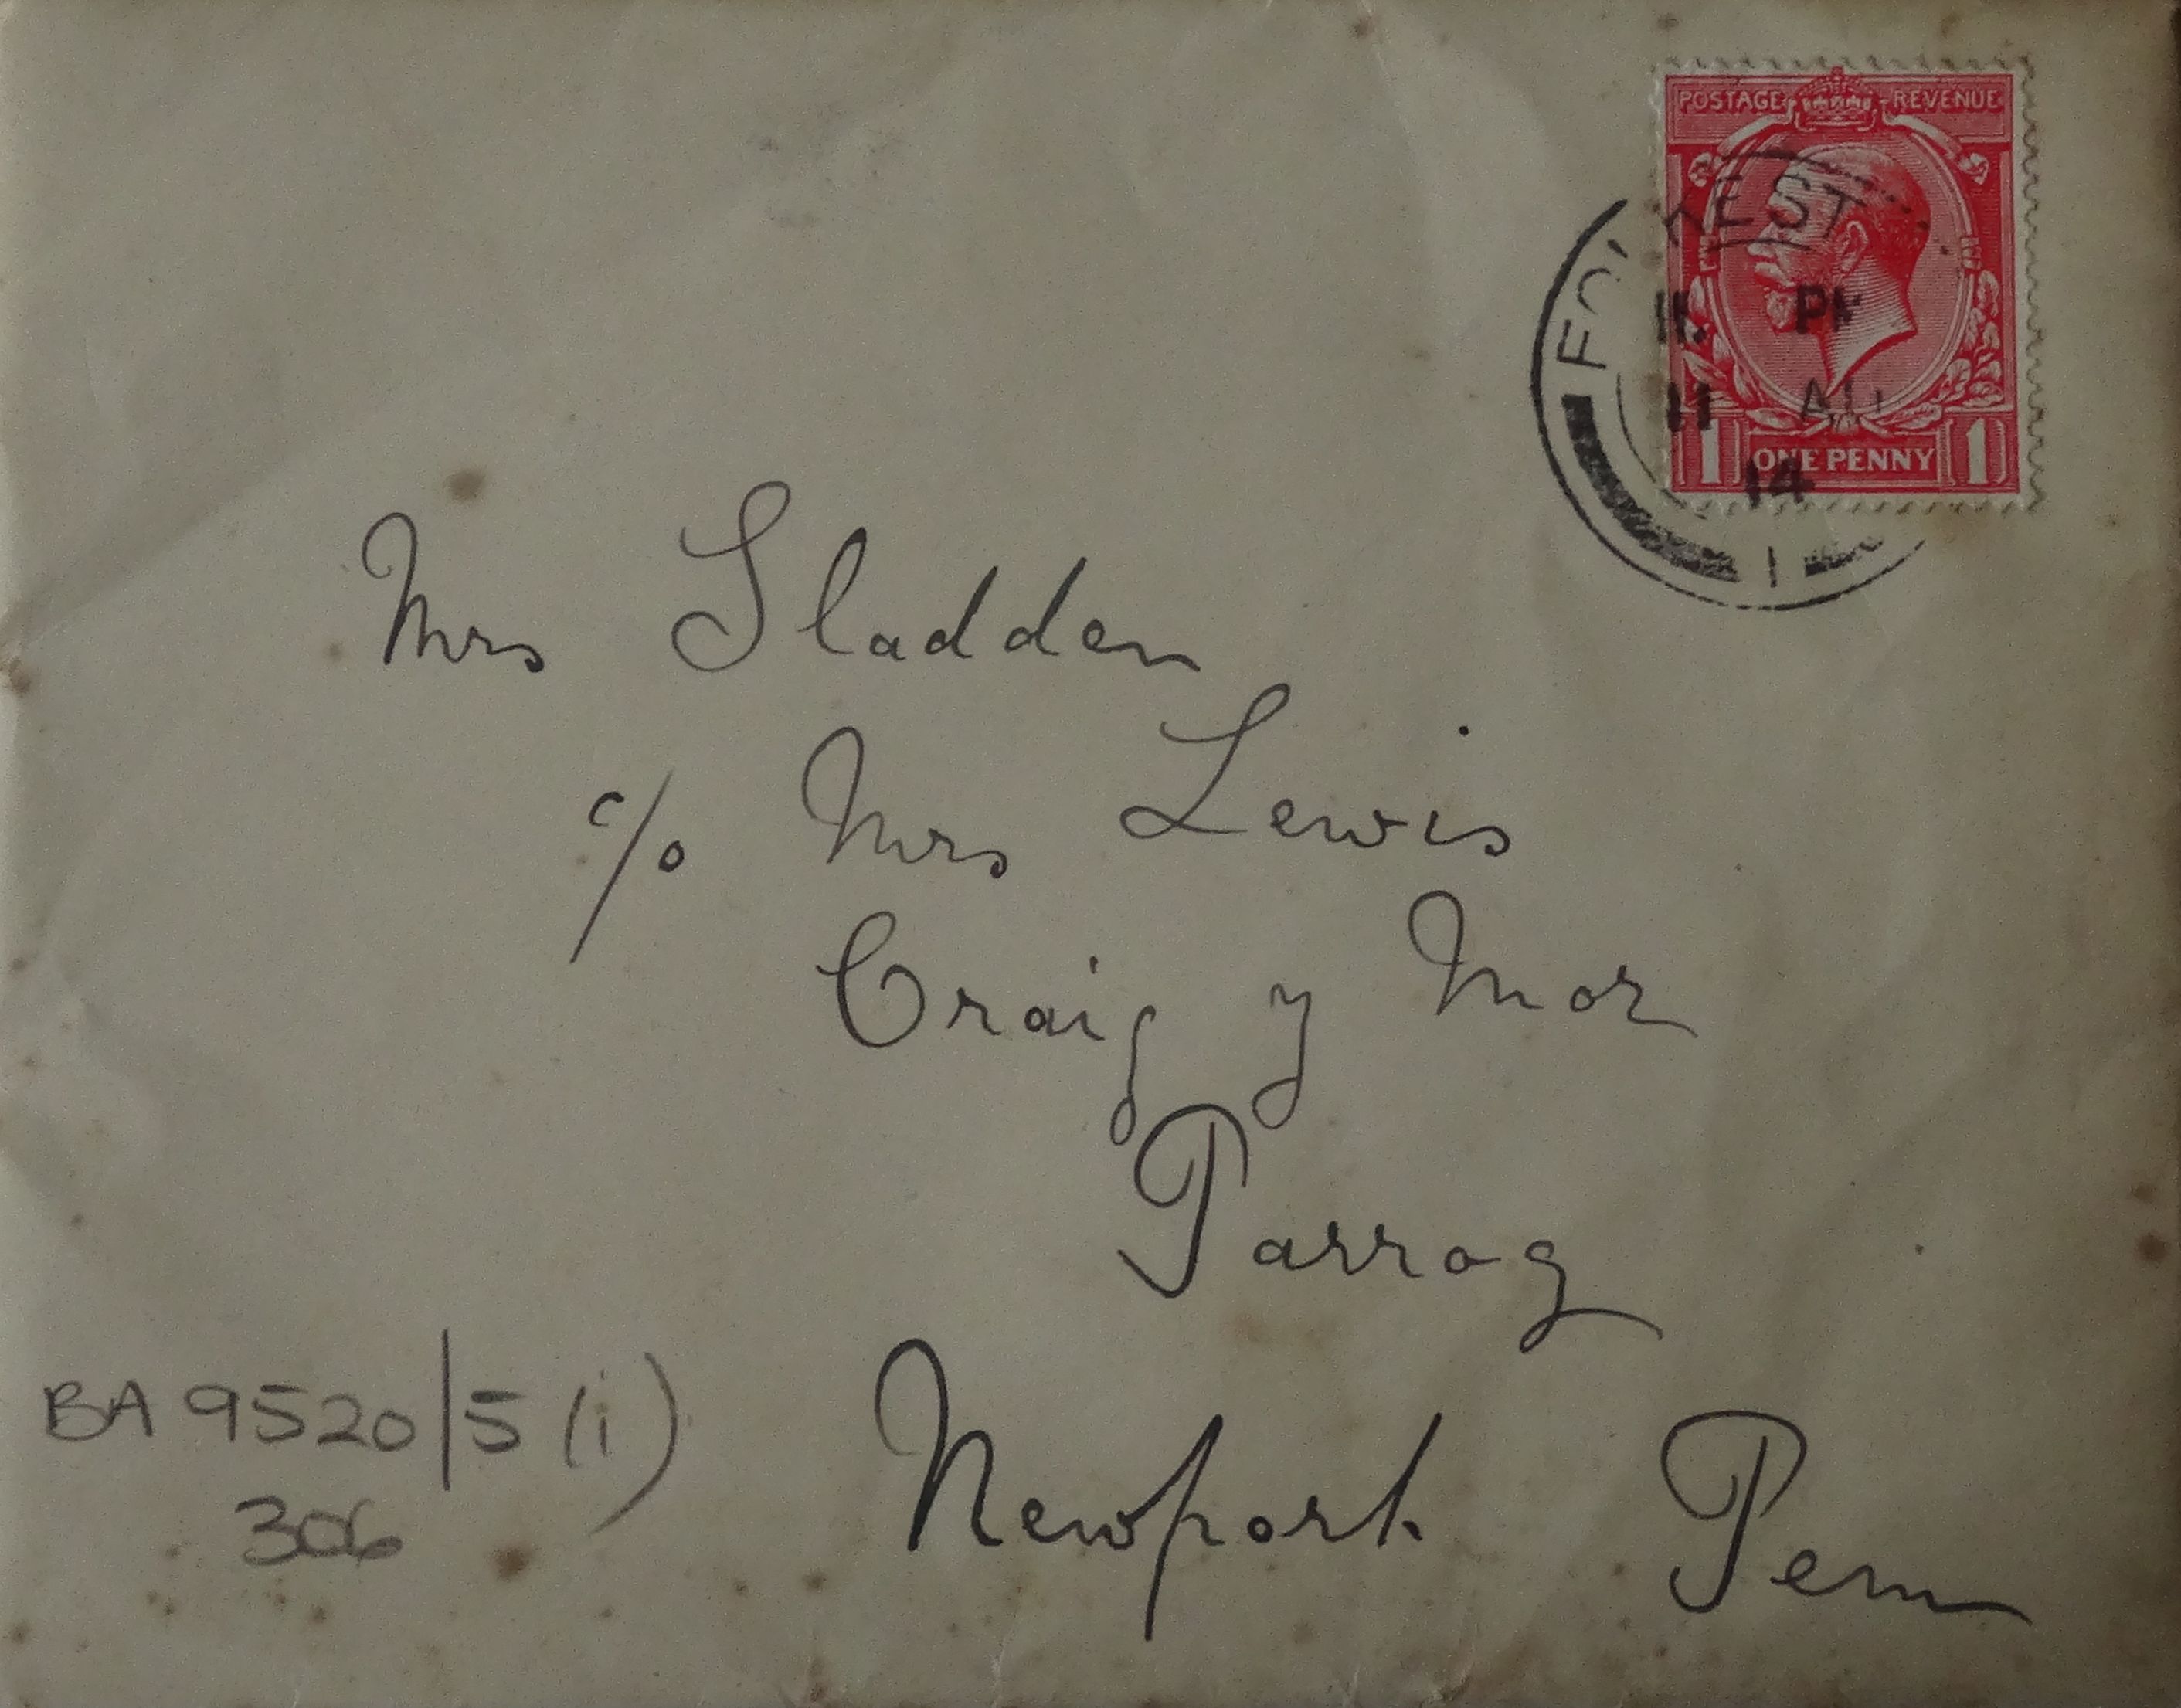 POSTAGE REVENUE
PM
11 AU
14
1 ONE PENNY 1
1
Mrs Sladden
c/o Mrs Lewis
Craig y Mor
Parrog
Newport Pem
BA 9520/5 (i)
306